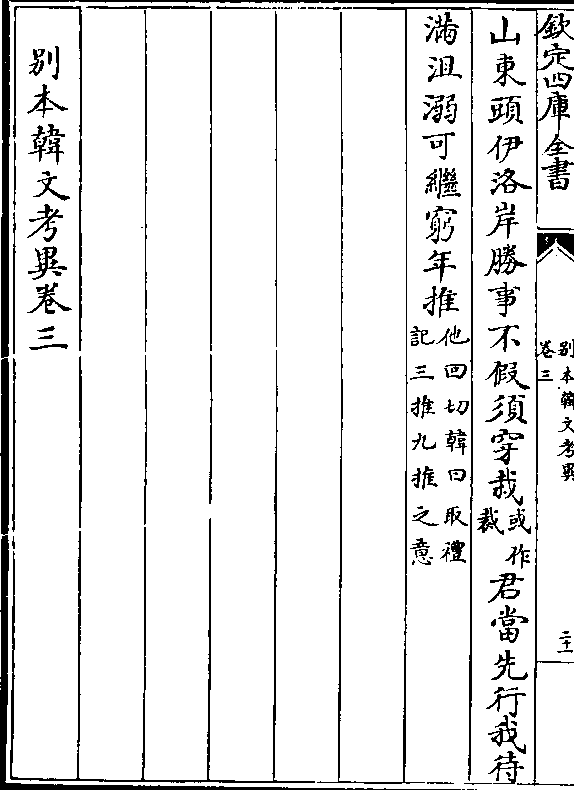 欽定四庫全書
别本韓文考異
卷三
二十一
山東頭伊洛岸勝事不假須穿栽
或作
裁
君當先行我待
滿沮溺可繼窮年推
他回切韓曰取禮
記三推九推之意
别本韓文考異卷三